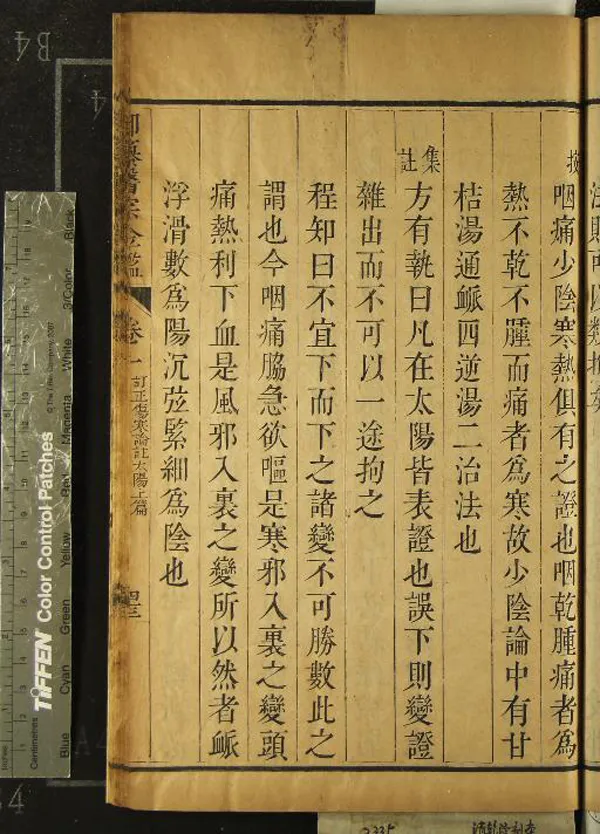 按
咽痛少陰寒熱俱有之證也咽乾腫痛者為
熱不乾不腫而痛者為寒故少陰論中有甘
桔湯通衇四逆湯二治法也
集註
方有執曰凡在太陽皆表證也誤下則變證
雜出而不可以一途拘之
程知曰不宜下而下之諸變不可勝數此之
謂也今咽痛脇急欲嘔是寒邪入裏之變頭
痛熱利下血是風邪入裏之變所以然者衇
浮滑數為陽沉弦緊細為陰也
御纂醫宗金鑑
卷一
訂正傷寒論註太陽上篇
B4
4
A4
TIFFEN Color Control Patches
© The Tiffen Company, 2007
Blue
Cyan
Green
Yellow
Red
Magenta
White
3/Color
Black
Inches
Centimetres